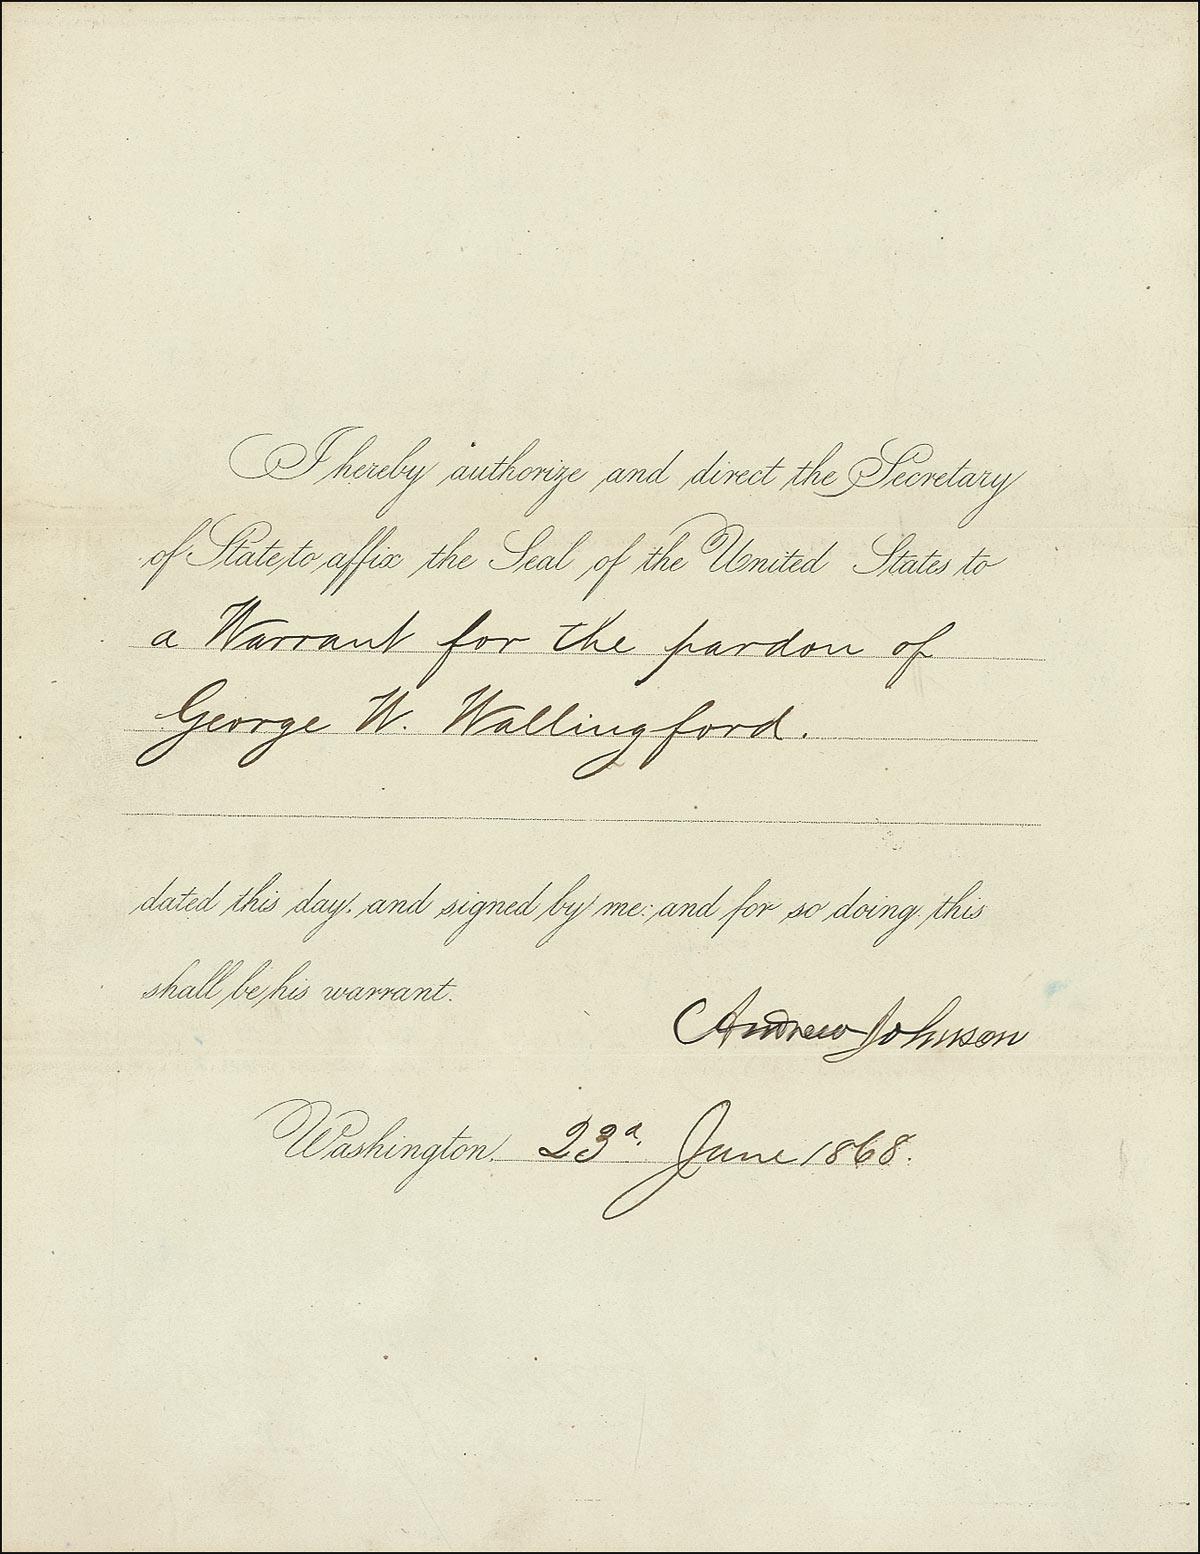 I hereby authorize and direct the Secretary
of State to affix the Seal of the United States to
a Warrant for the pardon of
George W. Wallingford.
dated this day, and signed by me: and for so doing this
shall be his warrant.
Andrew Johnson
Washington, 23d. June 1868.